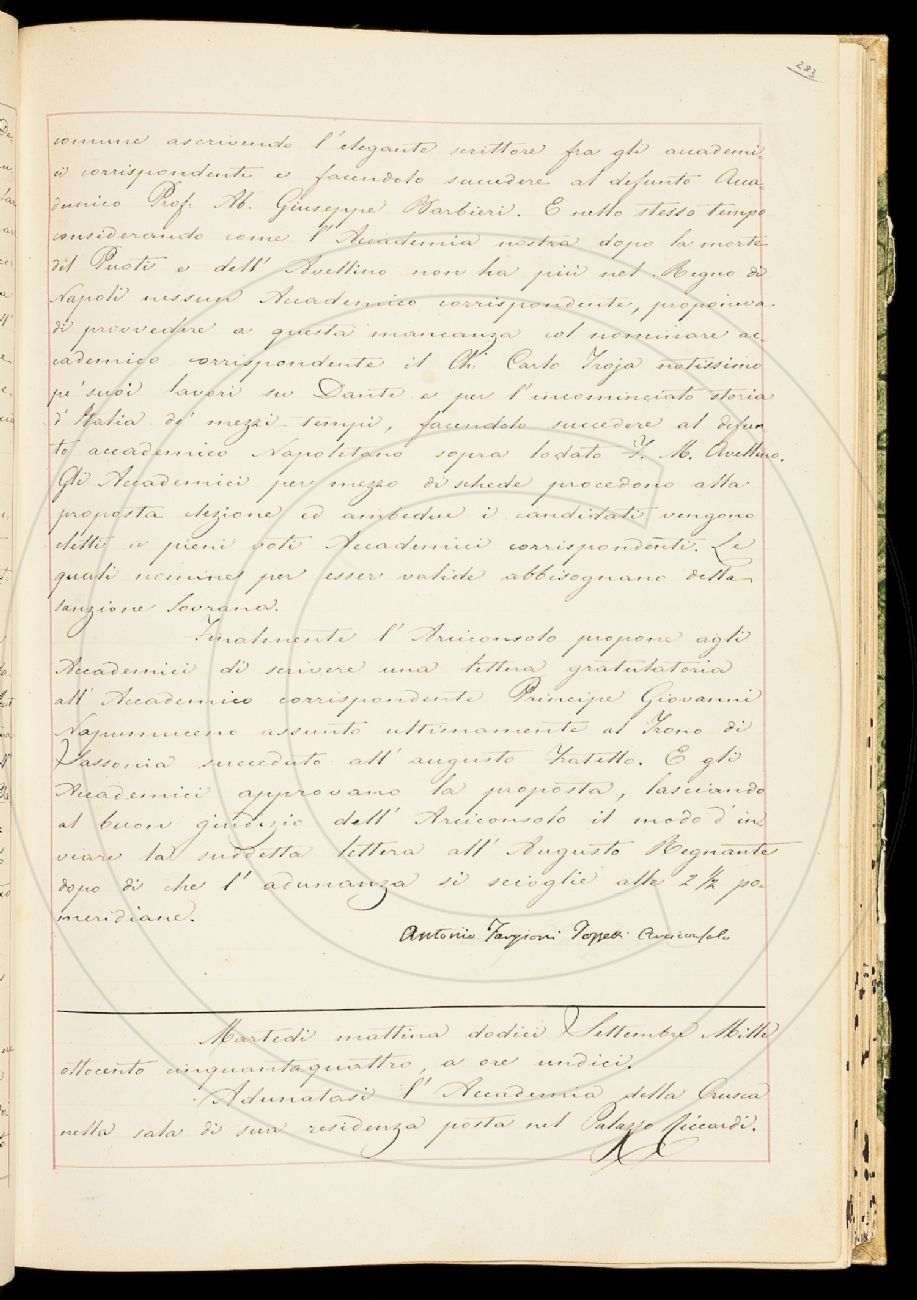 283
comune ascrivendo l'elegante scrittore fra gli accademi-
ci corrispondenti e facendolo succedere al defunto Acca-
demico Prof. Ab. Giuseppe Barbieri. E nello stesso tempo
considerando come l'Accademia nostra dopo la morte
del Puoti e dell'Avellino non ha più nel Regno di
Napoli nessun Accademico corrispondente, proponeva
di provvedere a questa mancanza col nominare ac-
cademico corrispondente il Ch. Carlo Troja notissimo
pe' suoi lavori su Dante e per l'incominciata storia
d'Italia de' mezzi tempi, facendolo succedere al defun
to accademico Napoletano sopra lodato F. M. Avellino.
Gli Accademici per mezzo di schede procedono alla
proposta elezione ed ambedue i candidati vengono
eletti a pieni voti Accademici corrispondenti. Le
quali nomine per esser valide abbisognano della
sanzione Sovrana.
Finalmente l'Arciconsolo propone agli
Accademici di scrivere una lettera gratulatoria
all'Accademico corrispondente Principe Giovanni
Napumuceno assunto ultimamente al Trono di
Sassonia succeduto all'augusto Fratello. E gli
Accademici approvano la proposta, lasciando
al buon giudizio dell'Arciconsolo il modo d'in-
viare la suddetta lettera all'Augusto Regnante
dopo di che l'adunanza si scioglie alle 2 1/2 po-
meridiane.
Antonio Targioni Tozzetti Arciconsolo
Martedì mattina dodici Settembre Mille
ottocento cinquantaquattro, a ore undici.
Adunatasi l'Accademia della Crusca
nella sala di sua residenza posta nel Palazzo Riccardi.